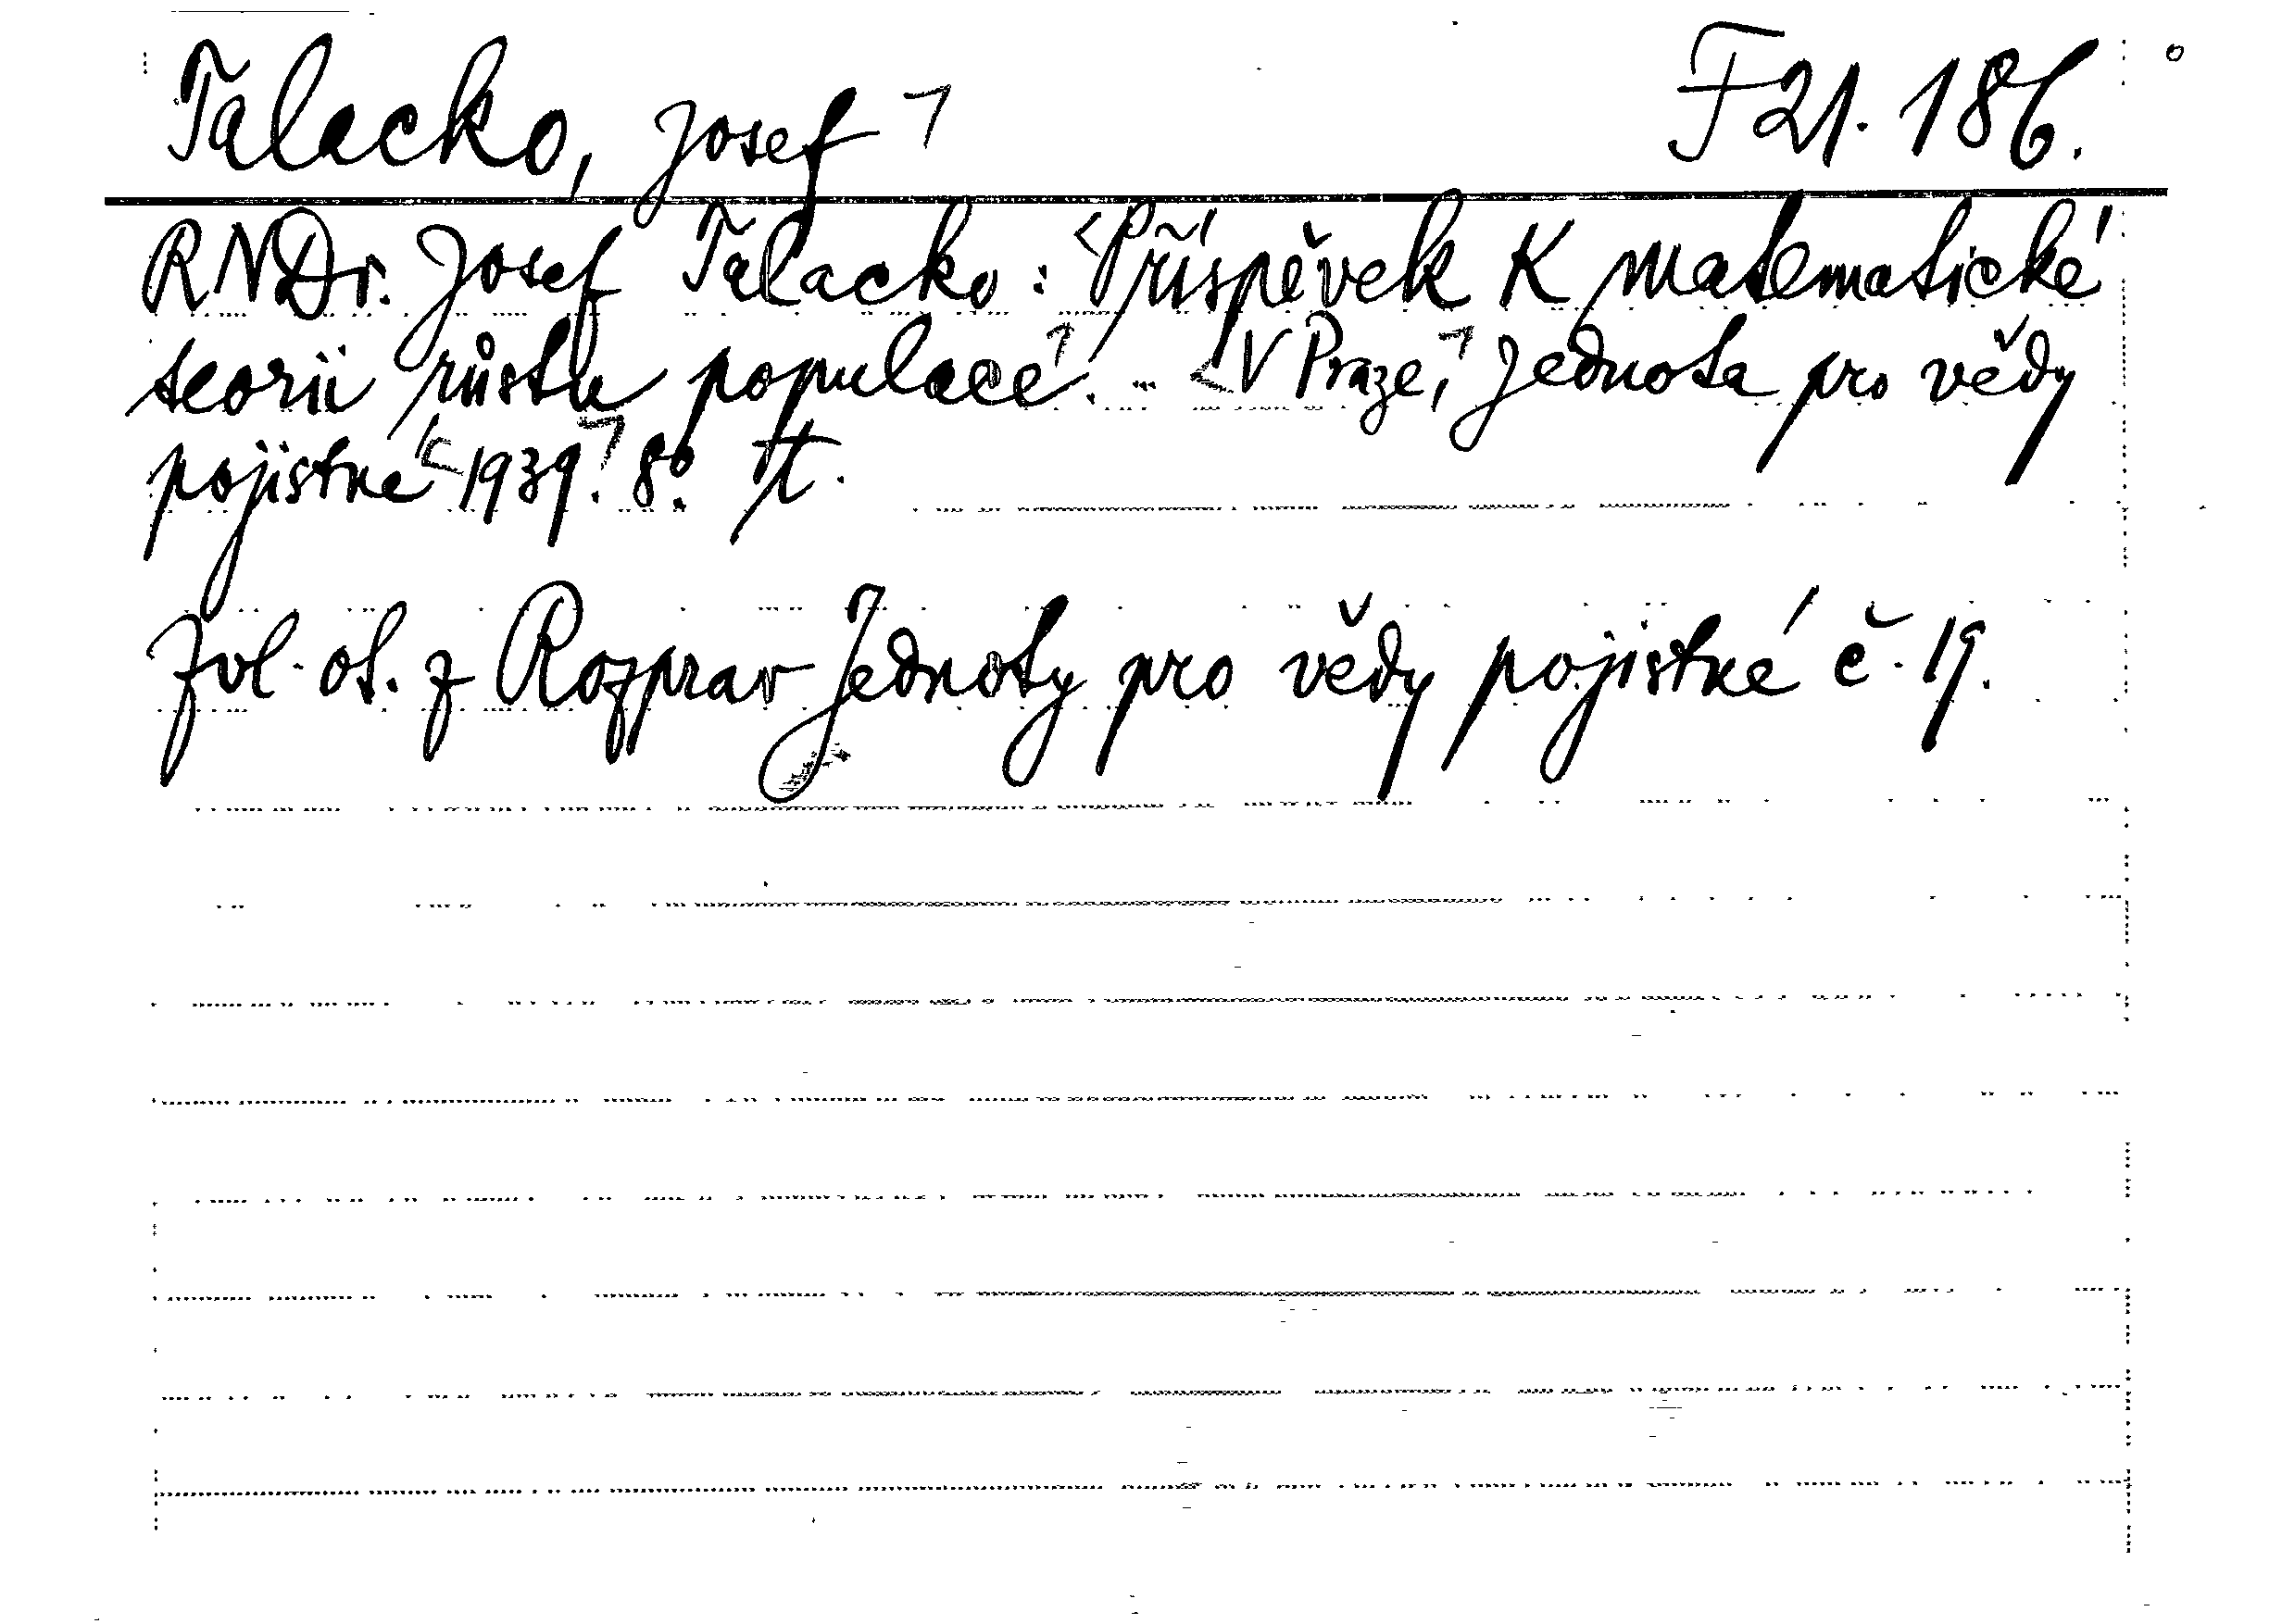 Talacko, Josef F 21.186.
RNDr. Josef Talacko: Příspěvek k matematické
teorii růstu populace. - V Praze, Jednota pro vědy
pojistné 1939. 8º. It.
Zvl. ot. z Rozprav Jednoty pro vědy pojistné č. 19.